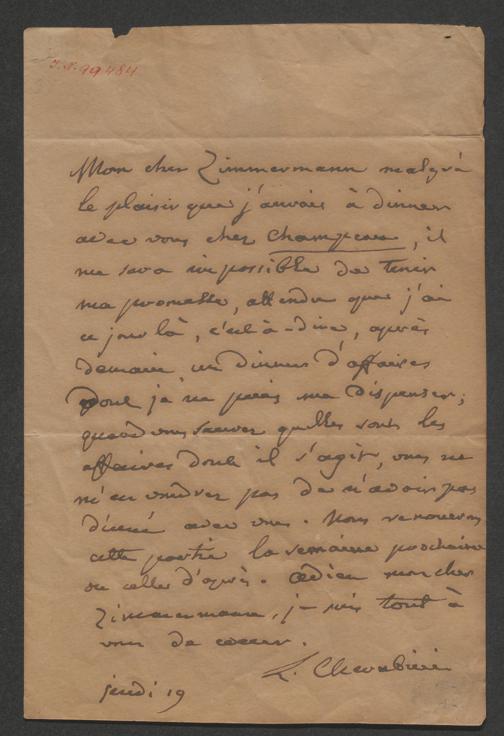 I.N. 99.484
Mon cher Zimmermann malgré
le plaisir que j'aurais à dinner
avec vous chez Champeau, il
me sera impossible de tenir
ma promesse, attendu que j'ai
ce jour là, c'est-à-dire, après
demain un dinner d'affaires
dont je ne puis me dispenser;
quand vous saurez quelles sont les
affaires dont il s'agit, vous ne
m'en voudrez pas de n'avoir pas
dinné avec vous. Nous renouerons
cette partie la semaine prochaine
ou celle d'après. Adieu mon cher
Zimmermann, je suis tout à
vous de coeur.
L. Cherubini
jeudi 19